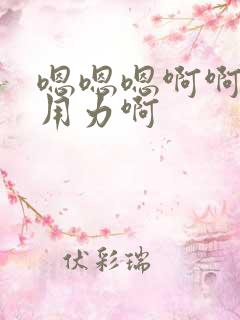 嗯嗯嗯啊啊
用力啊
伏彩瑞